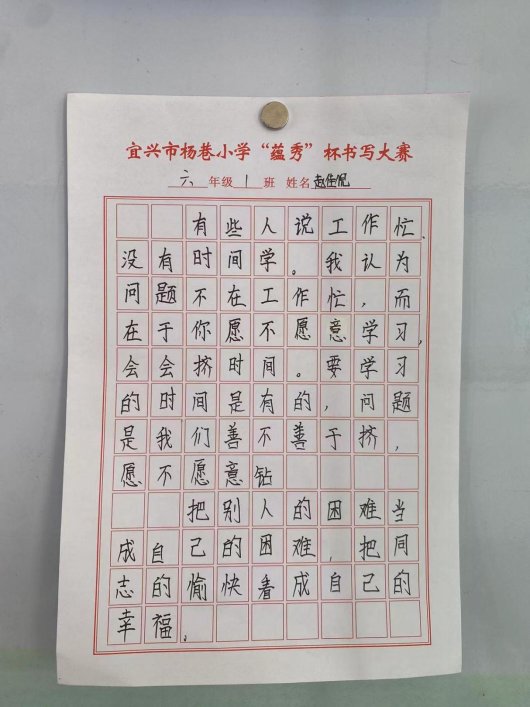 宜兴市杨巷小学“蕴秀”杯书写大赛
六 年级 1 班 姓名
有些人说工作忙、
没有时间学。我认为
问题不在工作忙，而
在于你愿不愿意学习，
会会挤时间。要学习
的时间是有的，问题
是我们善不善于挤，
愿不愿意钻
把别人的困难当
成自己的困难，把同
志的愉快看成自己的
幸福。